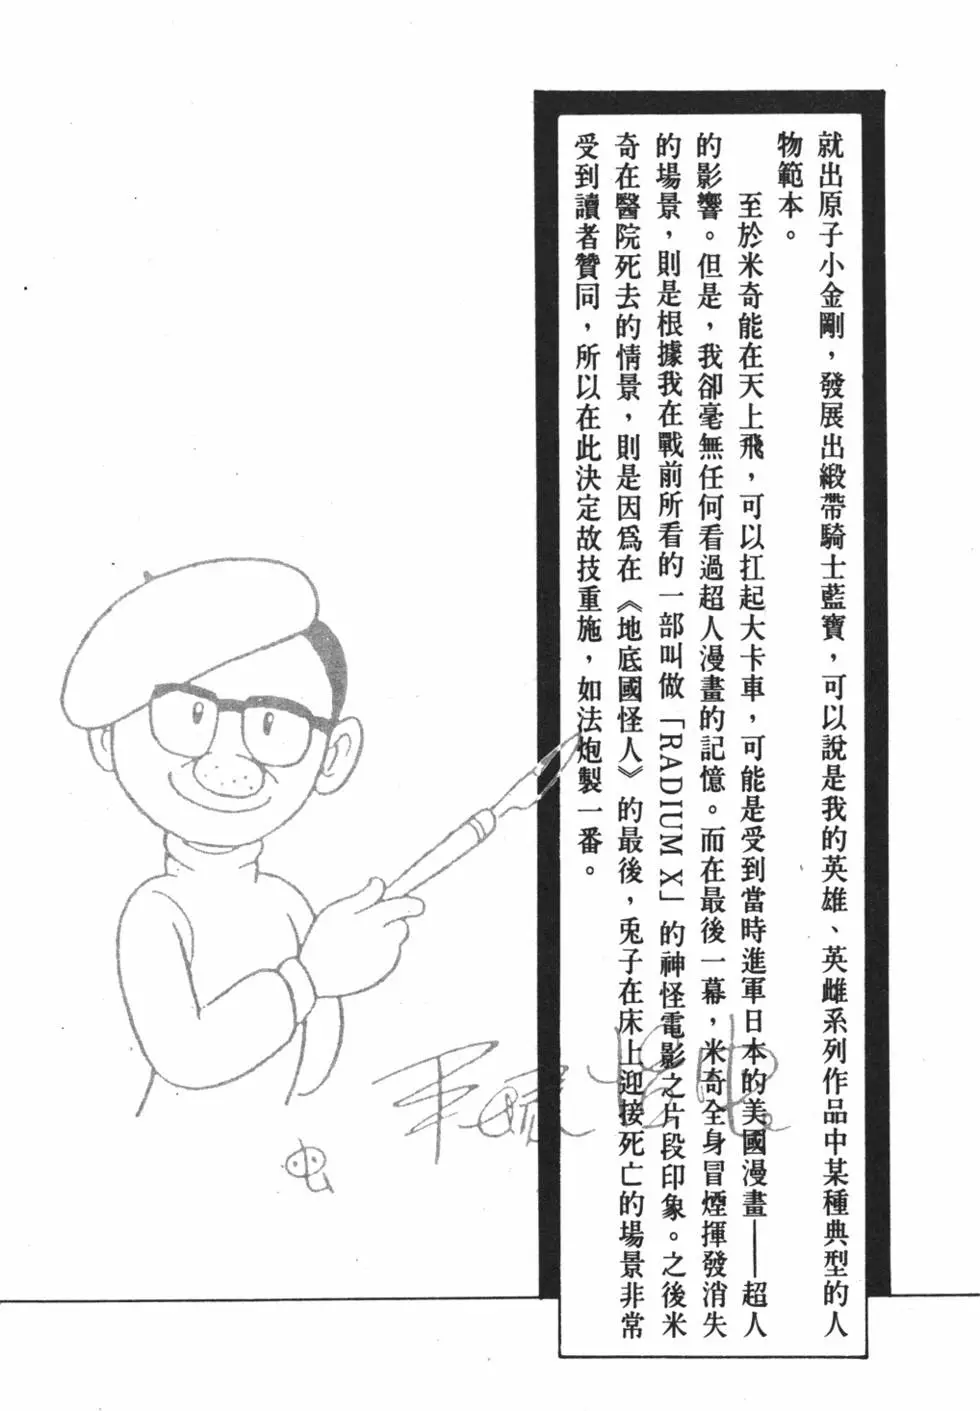 就出原子小金剛，發展出緞帶騎士藍寶，可以說是我的英雄、英雌系列作品中某種典型的人
物範本。
至於米奇能在天上飛，可以扛起大卡車，可能是受到當時進軍日本的美國漫畫——超人
的影響。但是，我卻毫無任何看過超人漫畫的記憶。而在最後一幕，米奇全身冒煙揮發消失
的場景，則是根據我在戰前所看的一部叫做「RADIUM X」的神怪電影之片段印象。之後米
奇在醫院死去的情景，則是因爲在《地底國怪人》的最後，兎子在床上迎接死亡的場景非常
受到讀者贊同，所以在此決定故技重施，如法炮製一番。